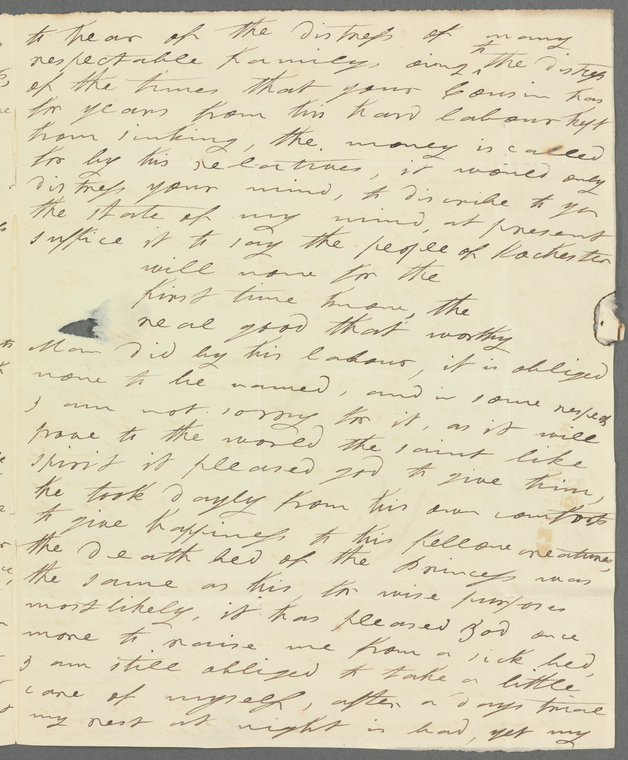 to hear of the distress of many
respectable Familys oing to the distress
of the times that your Cousin has
for years from his hard labour kept
from sinking, the money is called
for by his relatives, it would only
distress your mind, to discribe to you
the state of my mind, at present
suffice it to say the people of Rochester
will none for the
first time know, the
real good that worthy
Man did by his labour, it is obliged
none to be named, and in some respects
I am not sorry for it, as it will
prove to the world the saint like
spirit it pleased god to give him,
he took dayly from his own comforts
to give happiness to his fellow creatures,
the death bed of the Princess was
the same as his, for wise purposes
most likely, it has pleased God once
more to raise me from a sick bed,
I am still obliged to take a little
care of myself, after a days trial
my rest at night is bad, yet my